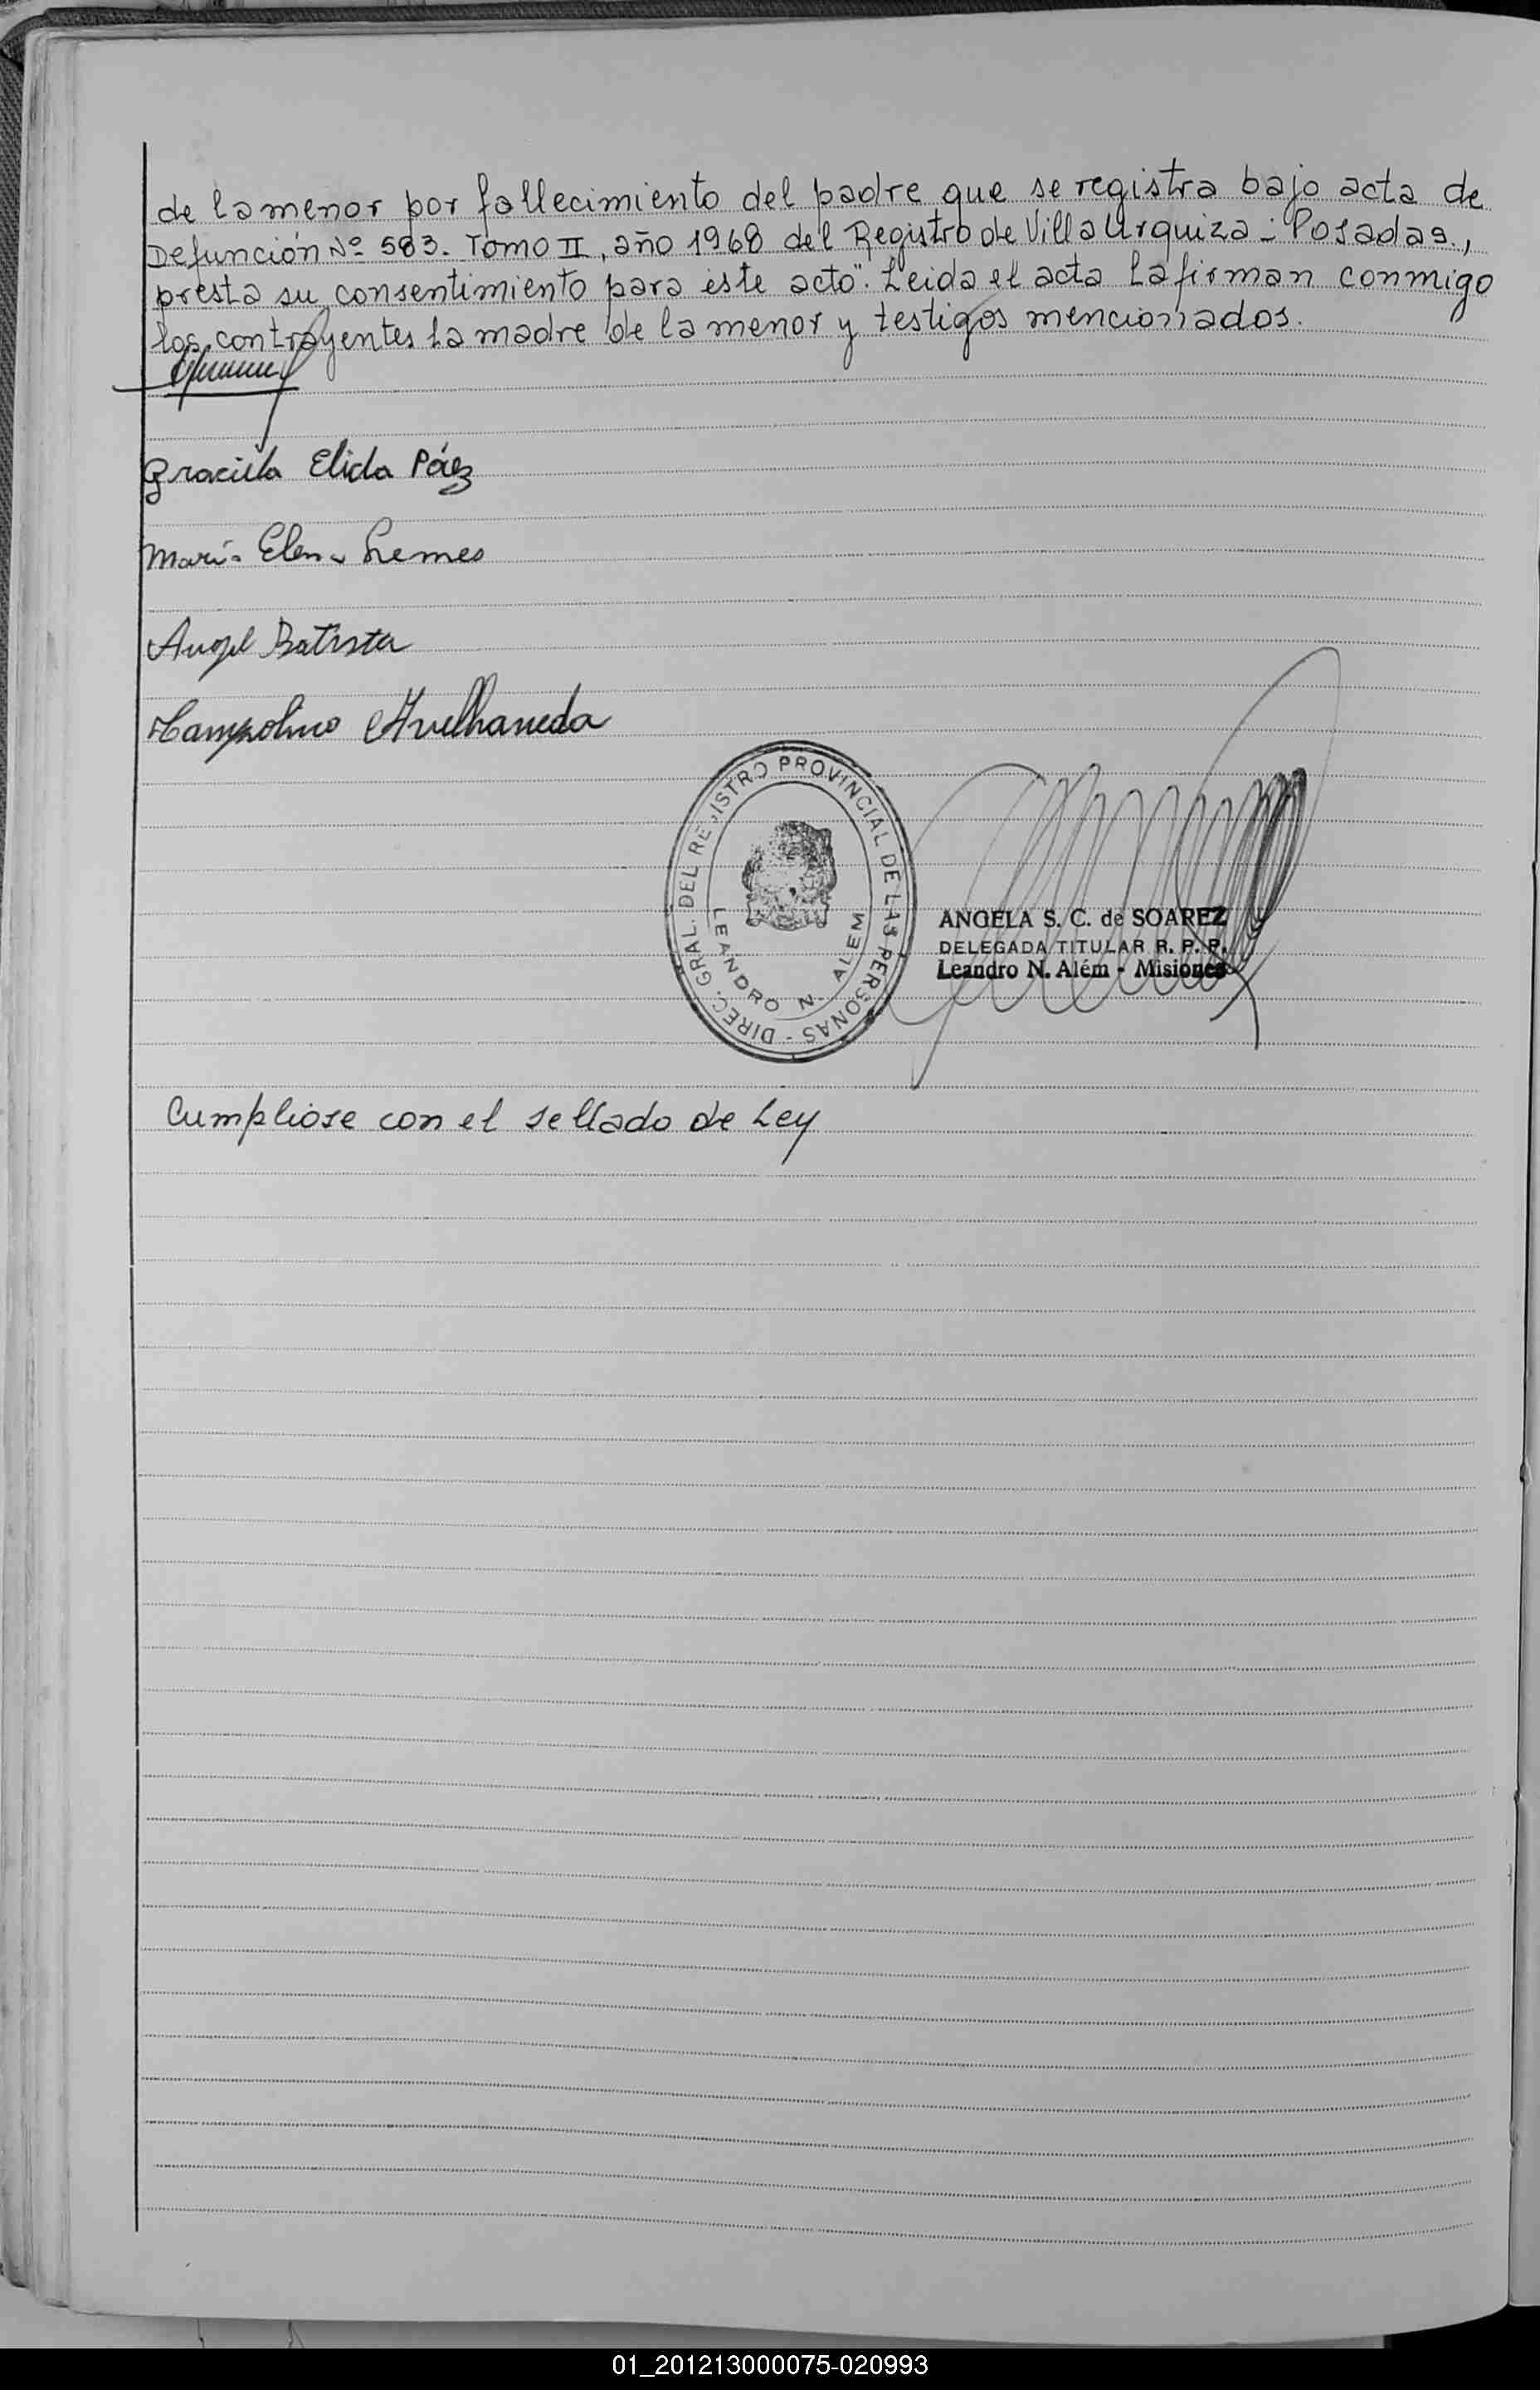 de la menor por fallecimiento del padre que se registra bajo acta de
Defunción Nº 583. Tomo II, año 1968 del Registro de Villa Urquiza - Posadas.,
presta su consentimiento para éste acto". Leida el acta la firman conmigo
los contrayentes la madre de la menor y testigos mencionados.
Graciela Elida Páez
María Elena Lemes
Angel Batista
Avelhaneda
DIREC. GRAL. DEL REGISTRO PROVINCIAL DE LAS PERSONAS -
LEANDRO N. ALEM
ANGELA S. C. de SOAREZ
DELEGADA TITULAR R. P. P.
Leandro N. Além - Misiones
Cumpliose con el sellado de Ley
01_201213000075-020993